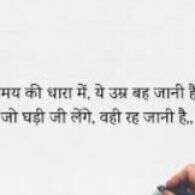 समय की धारा में, ये उम्र बह जानी है
जो घड़ी जी लेंगे, वही रह जानी है,,